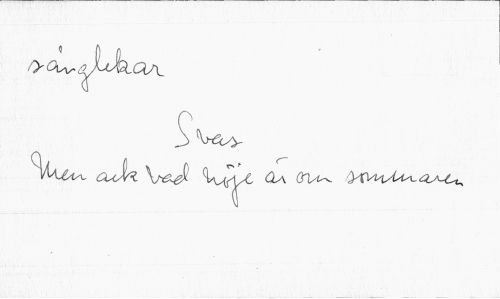 sånglekar
Svar
Men ack vad nöje är om sommaren